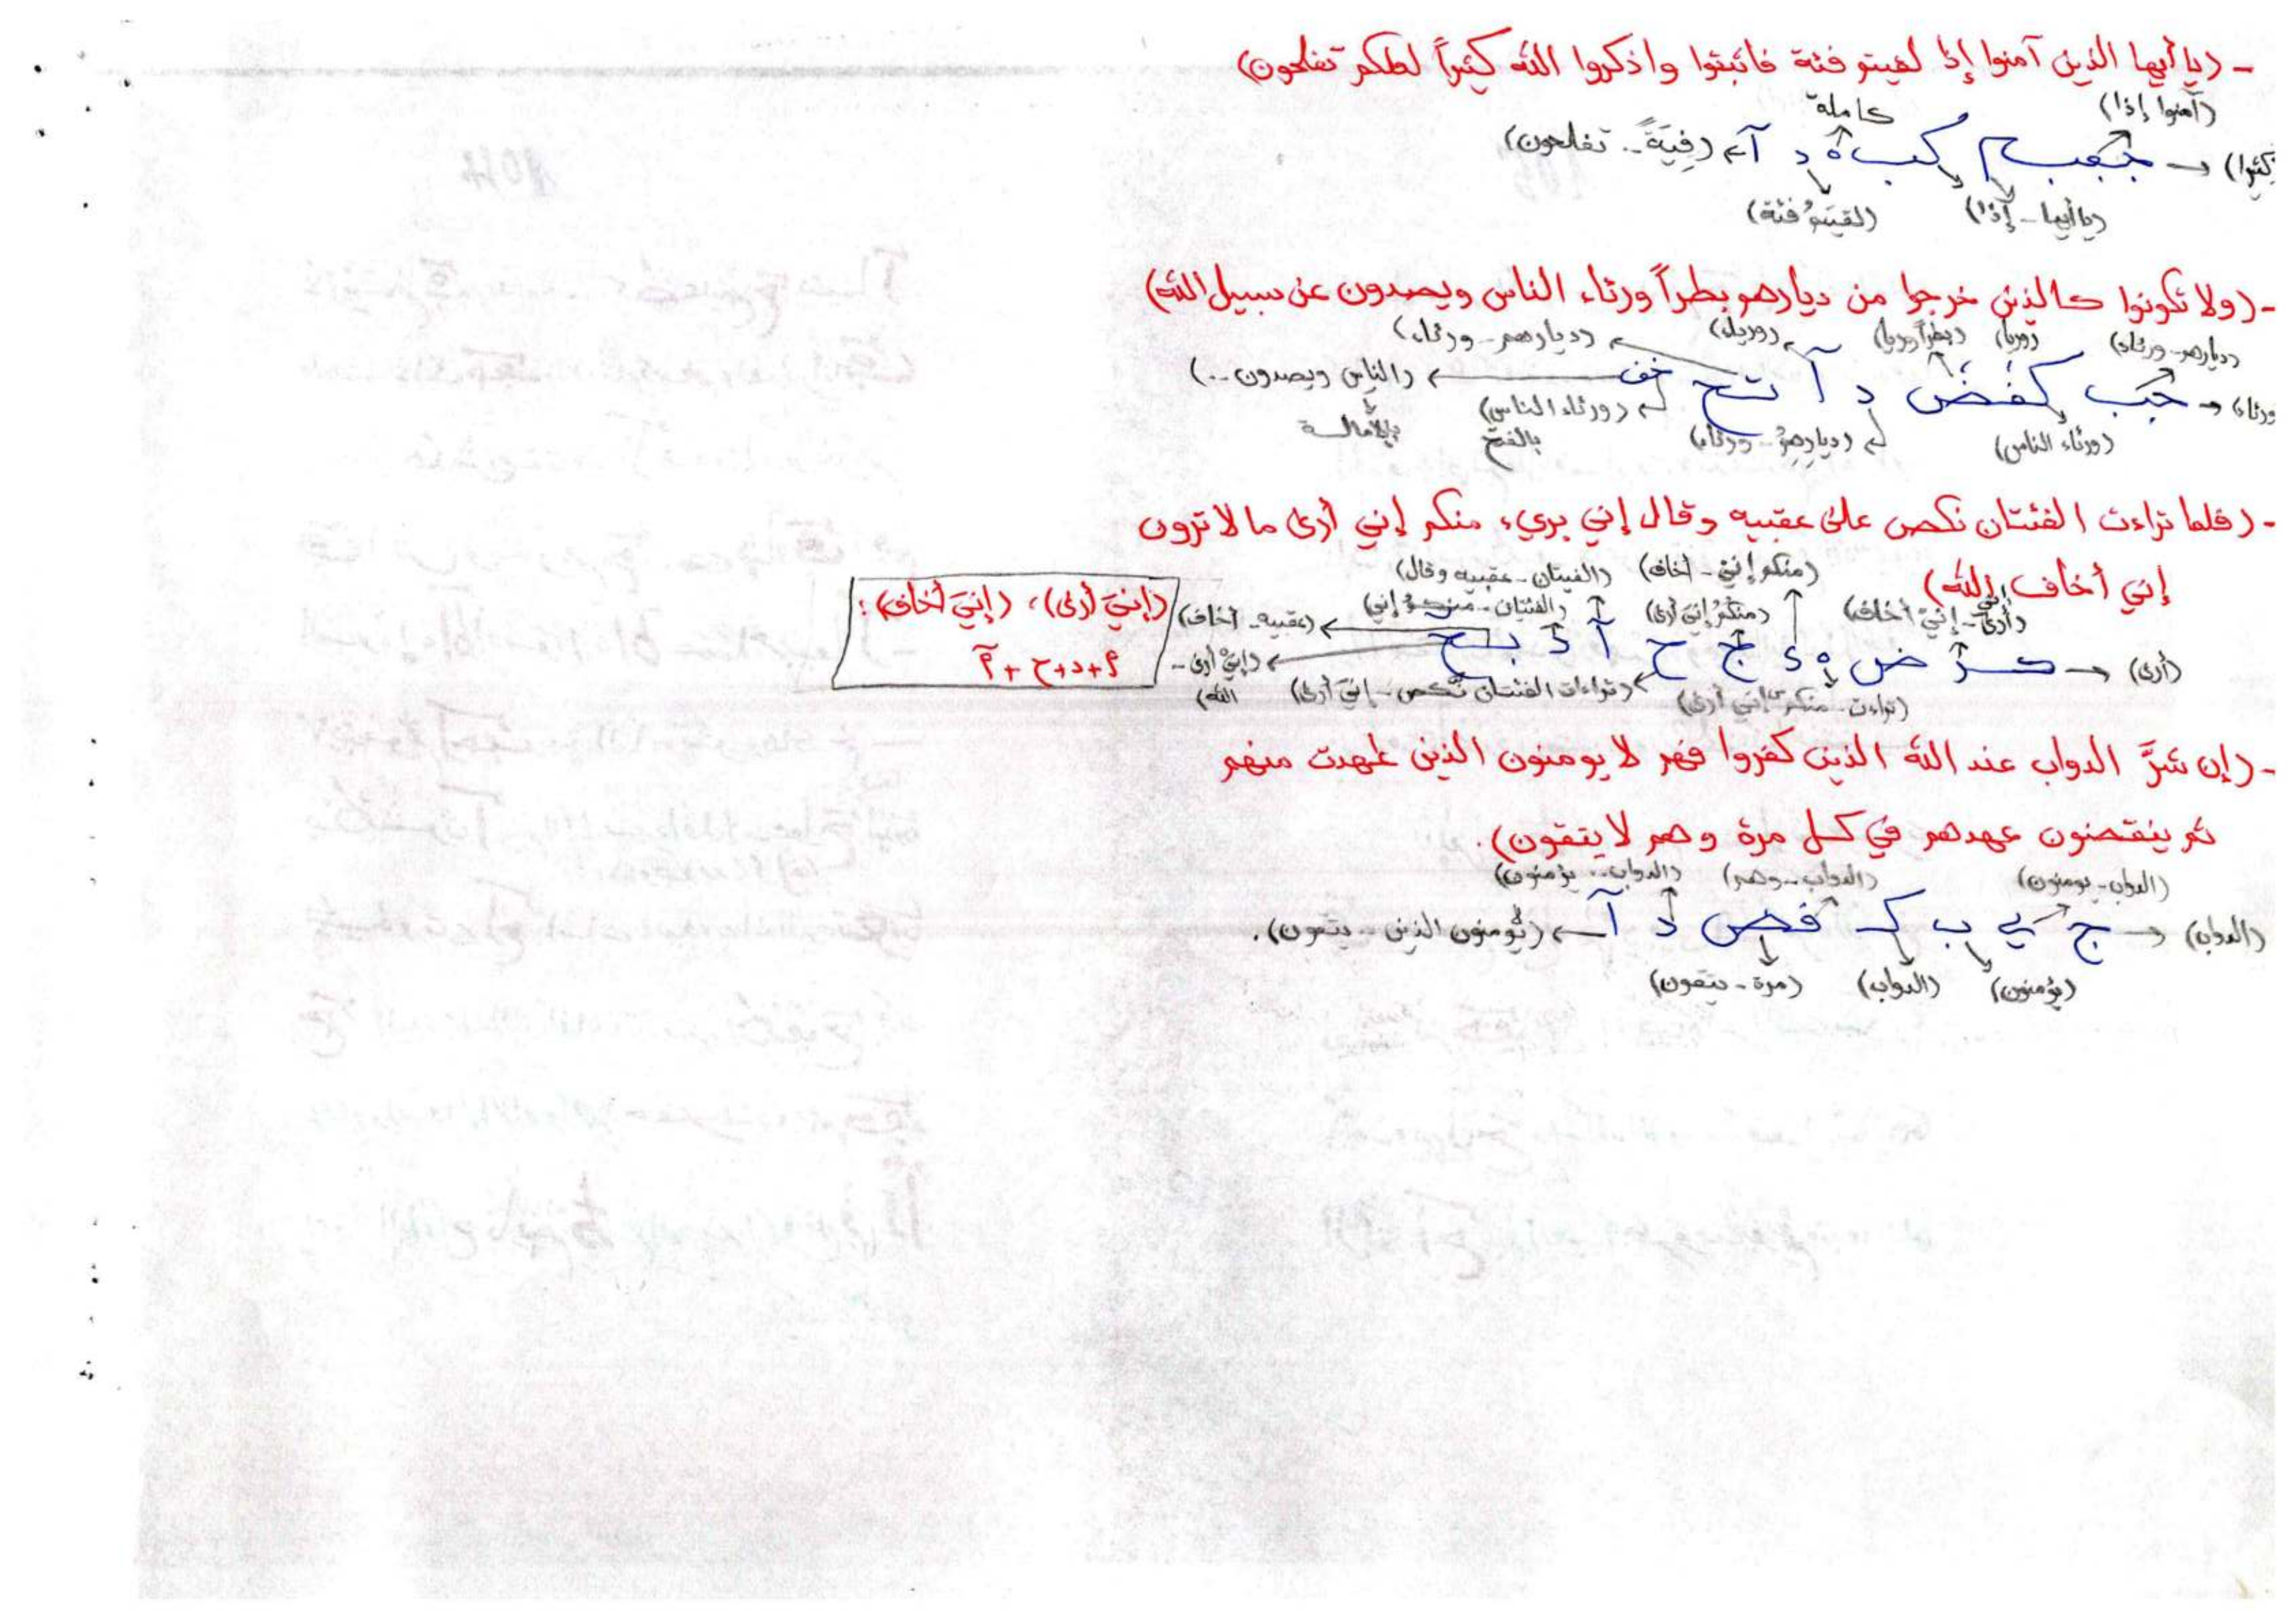 - (يا أيها الذين آمنوا إذا لقيتم فئة فاثبتوا واذكروا الله كثيراً لعلكم تفلحون)
(آمنوا إذا) كاملة
(كثيرا) ← جـ ك د آ ← (فِيَةً .. تفلحون)
(يا أيها - إذا) (لقيتمُ فئة)
- (ولا تكونوا كالذين خرجوا من ديارهم بطراً ورئاء الناس ويصدون عن سبيل الله)
(ديارهم - ورئاء) (وريا) (بطراً وريا) (ديارهم - ورئاء)
ورئاء ← د آ خف ← (الناس ويصدون ..)
(ورئاء الناس) (ديارهمُ - ورئاء) (ورئاء الناس) بالفتح بالإمالة
- (فلما تراءت الفئتان نكص على عقبيه وقال إني بريء منكم إني أرى ما لا ترون
إني أخاف الله)
(أرى - إنيْ أخاف) (منكم إني - أخاف) (الفيتان - عقبيه وقال)
(منكمُ إنيَ أرى) (الفئتان - منكمُ إني) (عقبيه - أخاف)
(أرى) ← ض ج ح آ د (إنيْ أرى - الله)
(تراءت - منكم إني أرى) (تراءات الفئتان نكص - إنيَ أرى)
(إنيَ أرى)، (إنيَ أخاف):
م + د + ح + م
- (إن شرَّ الدواب عند الله الذين كفروا فهم لا يومنون الذين عهدت منهم
ثم ينقضون عهدهم في كل مرة وهم لا يتقون).
(الدواب - يومنون) (الدواب - وهم) (الدواب .. يؤمنون)
(الدواب) ← ج ي ب ك فض د آ ← (يُومنون الذين - يتقون).
(يؤمنون) (الدواب) (مرة - يتقون)